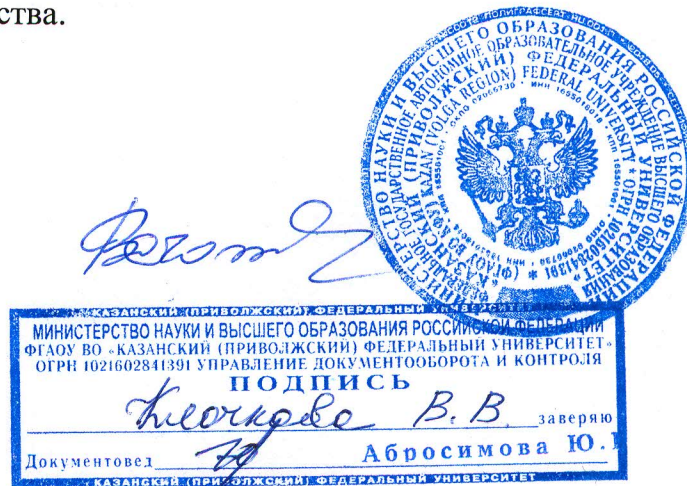 ства.
МИНИСТЕРСТВО НАУКИ И ВЫСШЕГО ОБРАЗОВАНИЯ РОССИЙСКОЙ ФЕДЕРАЦИИ
ФЕДЕРАЛЬНОЕ ГОСУДАРСТВЕННОЕ АВТОНОМНОЕ ОБРАЗОВАТЕЛЬНОЕ УЧРЕЖДЕНИЕ ВЫСШЕГО ОБРАЗОВАНИЯ
«КАЗАНСКИЙ (ПРИВОЛЖСКИЙ) ФЕДЕРАЛЬНЫЙ УНИВЕРСИТЕТ» * ОГРН 1021602841391 *
(ФГАОУ ВО КФУ) KAZAN (VOLGA REGION) FEDERAL UNIVERSITY
КАЗАНСКИЙ (ПРИВОЛЖСКИЙ) ФЕДЕРАЛЬНЫЙ УНИВЕРСИТЕТ
МИНИСТЕРСТВО НАУКИ И ВЫСШЕГО ОБРАЗОВАНИЯ РОССИЙСКОЙ ФЕДЕРАЦИИ
ФГАОУ ВО «КАЗАНСКИЙ (ПРИВОЛЖСКИЙ) ФЕДЕРАЛЬНЫЙ УНИВЕРСИТЕТ»
ОГРН 1021602841391 УПРАВЛЕНИЕ ДОКУМЕНТООБОРОТА И КОНТРОЛЯ
ПОДПИСЬ
Клочкова В. В. заверяю
Документовед Абросимова Ю.
КАЗАНСКИЙ (ПРИВОЛЖСКИЙ) ФЕДЕРАЛЬНЫЙ УНИВЕРСИТЕТ